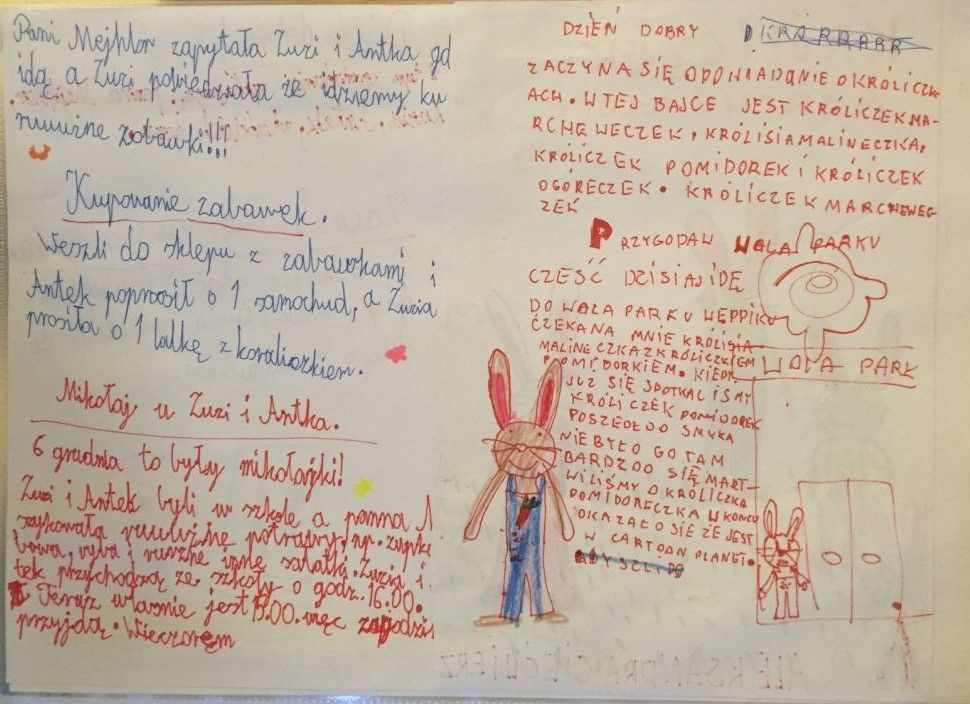 Pani Mejhlor zapytała Zuzi i Antka gd
idą a Zuzi powiedziała że idziemy ku
ruuuużne zabawki!!!
Kupowanie zabawek.
Weszli do sklepu z zabawkami i
Antek poprosił o 1 samochud, a Zuzia
prosiła o 1 lalkę z koraliczkiem.
Mikołaj u Zuzi i Antka.
6 grudnia to były mikołajki!
Zuzi i Antek byli w szkole a panna
szykowała ruuuużne potrawy np. zupke
ryba i rużne inne sałatki. Zuzia i
tek przychodzą ze szkoły o godz. 16.00.
Teraz własnie jest 15.00. więc za godzi
przyjdą. Wieczorem
DZIEŃ DOBRY
ZACZYNA SIĘ OPOWIADANIE O KRÓLICZK
ACH. W TEJ BAJCE JEST KRÓLICZEK MA-
RCHEWECZEK, KRÓLISIA MALINECZKA,
KRÓLICZEK POMIDOREK I KRÓLICZEK
OGÓRECZEK. KRÓLICZEK MARCHEWEC-
ZEK
PRZYGODA W WOLA PARKU
CZEŚĆ DZISIAJ IDĘ
DO WOLA PARKU W EPPIKU
CZEKA NA MNIE KRÓLISIA
MALINECZKA Z KRÓLICZKIEM
POMIDORKIEM. KIEDY
JUŻ SIĘ SPOTKALIŚMY
KRÓLICZEK POMIDOREK
POSZEDŁ DO SMYKA
NIE BYŁO GO TAM
BARDZO SIĘ MART-
WILIŚMY O KRÓLICZKA
POMIDORECZKA W KOŃCU
OKAZAŁO SIĘ ŻE JEST
W CARTOON PLANET.
WOLA PARK
ALEKSANDRA CIEĆWIERZ